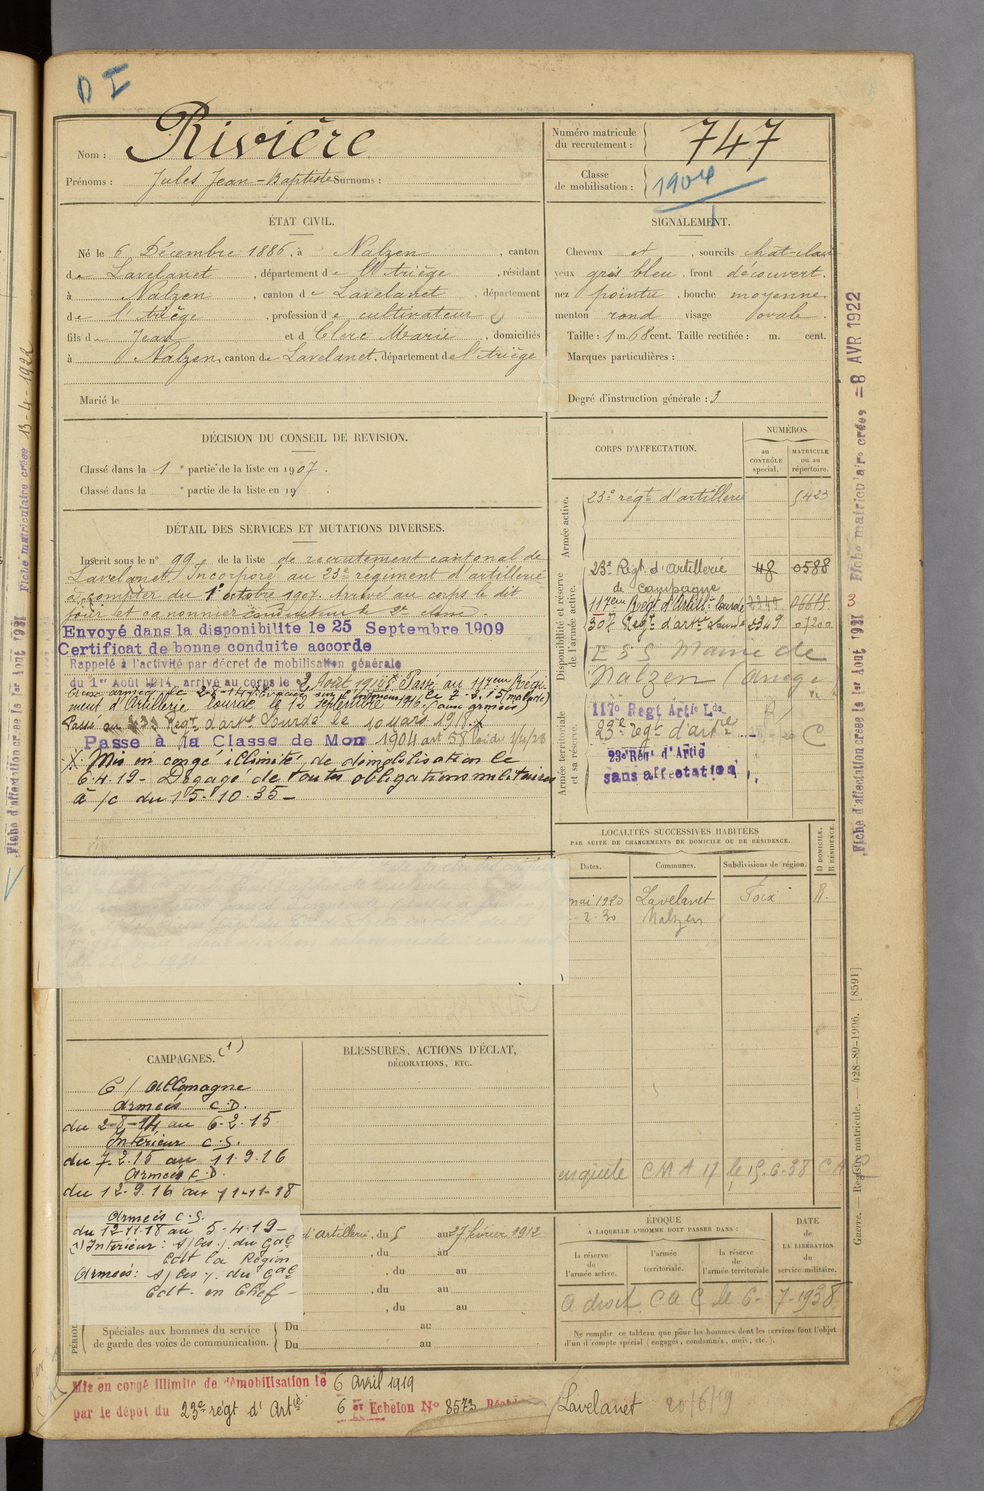 D I
Nom : Rivière
Prénoms : Jules Jean-Baptiste Surnoms :
Numéro matricule du recrutement : 747
Classe de mobilisation : 1904
ÉTAT CIVIL.
Né le 6 Décembre 1886, à Nalzen, canton
de Lavelanet, département de l'Ariège, résidant
à Nalzen, canton de Lavelanet, département
de l'Ariège, profession de cultivateur
fils de Jean et d Marie, domiciliés
à Nalzen, canton de Lavelanet, département de l'Ariège
Marié le
SIGNALEMENT.
Cheveux et, sourcils chat-clair
yeux gris bleu, front découvert.
nez pointu, bouche moyenne.
menton rond visage ovale.
Taille : 1 m. 68 cent. Taille rectifiée : m. cent.
Marques particulières :
Degré d'instruction générale : 3
DÉCISION DU CONSEIL DE REVISION.
Classé dans la 1e partie de la liste en 1907.
Classé dans la e partie de la liste en 19
DÉTAIL DES SERVICES ET MUTATIONS DIVERSES.
Inscrit sous le n° 99 de la liste de recrutement cantonal de
Lavelanet. Incorporé au 23e régiment d'artillerie
à compter du 1er octobre 1907. Arrivé au corps le dit
jour et canonnier conducteur de 2e classe.
Envoyé dans la disponibilité le 25 Septembre 1909
Certificat de bonne conduite accordé
Rappelé à l'activité par décret de mobilisation générale
du 1er Août 1914, arrivé au corps le 2 Août 1914. Passé au 117eme Régi-
ment d'Artillerie lourde le 12 septembre 1916. (aux armées)
Passé au Regt d'artie Lourde le 10 mars 191
Passé à la Classe de Mon 1904 art 58 loi du 1/4/23
X Mis en congé illimité de démobilisation le
6.4.19 - Dégagé de toutes obligations militaires
à /c du 15.10.35 -
CORPS D'AFFECTATION.
NUMÉROS
au CONTRÔLE spécial.
MATRICULE ou au répertoire.
Armée active.
23e régt d'artillerie 5423
Disponibilité et réserve de l'armée active.
23e Régt d'Artillerie 48 0588
de campagne
117eme Regt d'Artie lourde
307 Regt d'artie Lourde 2349
E S S Maine de
Nalzen (Ariège)
Armée territoriale et sa réserve.
117e Regt Artie Lde
23e regt d'artie C
23e Régt d'Artie
sans affectation
LOCALITÉS SUCCESSIVES HABITÉES
PAR SUITE DE CHANGEMENTS DE DOMICILE OU DE RÉSIDENCE.
Dates. Communes. Subdivisions de région. D DOMICILE. R RÉSIDENCE.
mai 1920 Lavelanet Foix R.
2-30 Nalzen
CAMPAGNES. (1)
C / Allemagne
Armées C.D.
du 2-8-14 au 6.2.15
Intérieur C.S.
du 7.2.15 au 11.9.16
Armées C.D.
du 12.9.16 au 11-11-18
Armées C.S.
du 12-11-18 au 5-4-19 -
(1) Intérieur : s/les y. du Gal
Cdt la Région
Armées : s/les y. du Gal
Cdt. en Chef -
BLESSURES, ACTIONS D'ÉCLAT,
DÉCORATIONS, ETC.
enquête C M A 17 le 15-6-38 C A
d'artillerie, du 5 au 27 février 1912
, du au
, du au
, du au
, du au
Spéciales aux hommes du service de garde des voies de communication.
Du au
Du au
ÉPOQUE
À LAQUELLE L'HOMME DOIT PASSER DANS :
la réserve de l'armée active.
l'armée territoriale.
la réserve de l'armée territoriale
DATE de LA LIBÉRATION du service militaire.
a droit C a C le 6- 7-1938
Ne remplir ce tableau que pour les hommes dont les services font l'objet
d'un décompte spécial (engagés, condamnés, omis, etc.).
Mis en congé illimité de démobilisation le 6 avril 1919
par le dépot du 23e régt d'Artie 6 er Echelon N° 8573 Lavelanet 20/6/19
Fiche matriculaire créée 13-4-1922
Fiche d'affectation créée le 1er Aout 1931
Fiche matriculaire créée = 8 AVR 1922
3
Fiche d'affectation créée le 1er Aout 1931
Guerre. — Registre matricule. — 428-89-1906. [8591]